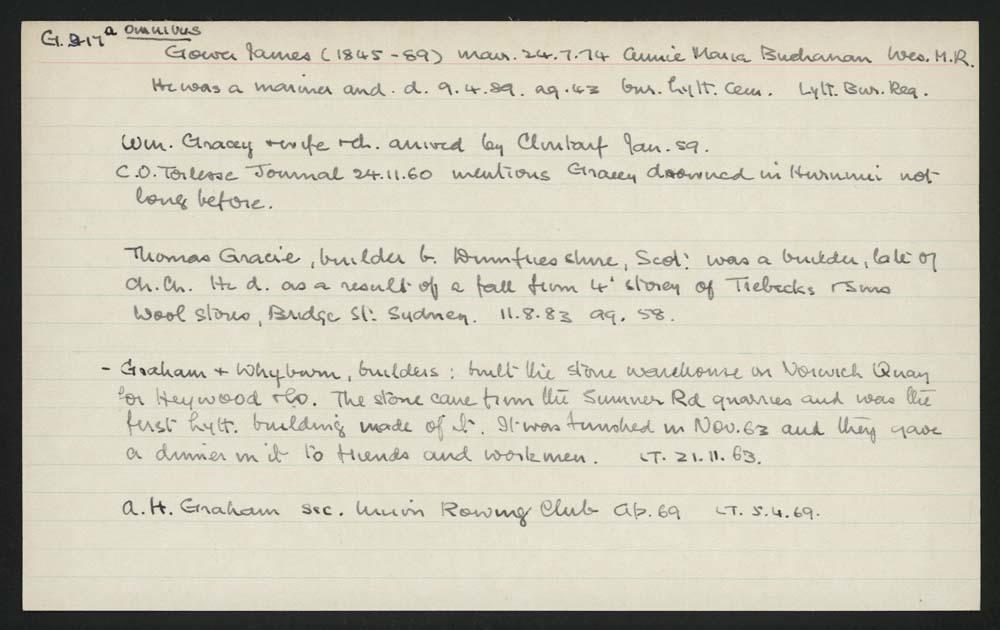 G.217a omnibus
Gower James (1845-89) mar. 24.7.74 Annie Maria Buchanan Wes. M.R.
He was a mariner and. d. 9.4.89. ag. 43 bur. Lytt. Cem. Lytt. Bur. Reg.
Wm. Gracey + wife + ch. arrived by Clontarf Jan. 59.
C.O. Torlesse Journal 24.11.60 mentions Gracey drowned in Hurunui not
long before.
Thomas Gracie, builder b. Dumfriesshire, Scot: was a builder, late of
Ch.Ch. He d. as a result of a fall from 4' storey of Trebecks + Sons
Wool stores, Bridge St: Sydney. 11.8.83 ag. 58.
- Graham + Whyburn, builders: built the stone warehouse on Norwich Quay
for Heywood + Co. The stone came from the Sumner Rd quarries and was the
first Lytt. building made of it. It was finished in Nov. 63 and they gave
a dinner in it to friends and workmen. LT. 21.11.63.
A.H. Graham sec. Union Rowing Club Ap. 69 LT. 5.4.69.